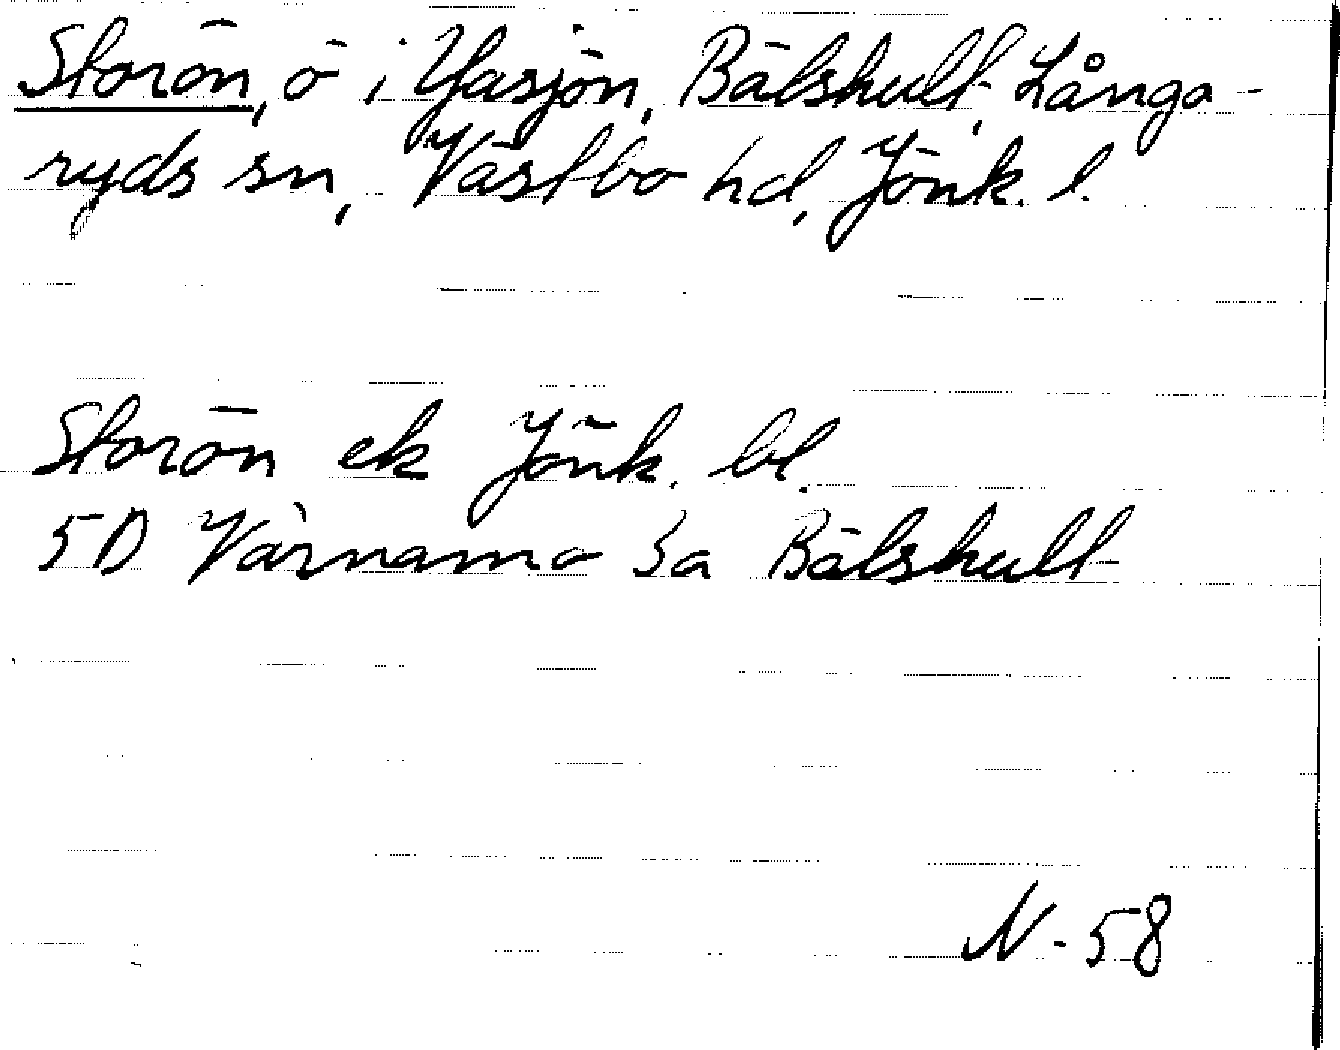 Storön, ö i Yasjön, Bälshult, Långa-
ryds sn, Västbo hd, Jönk. l.
Storön ek Jönk. bl.
5D Värnamo 3a Bälshult
N-58